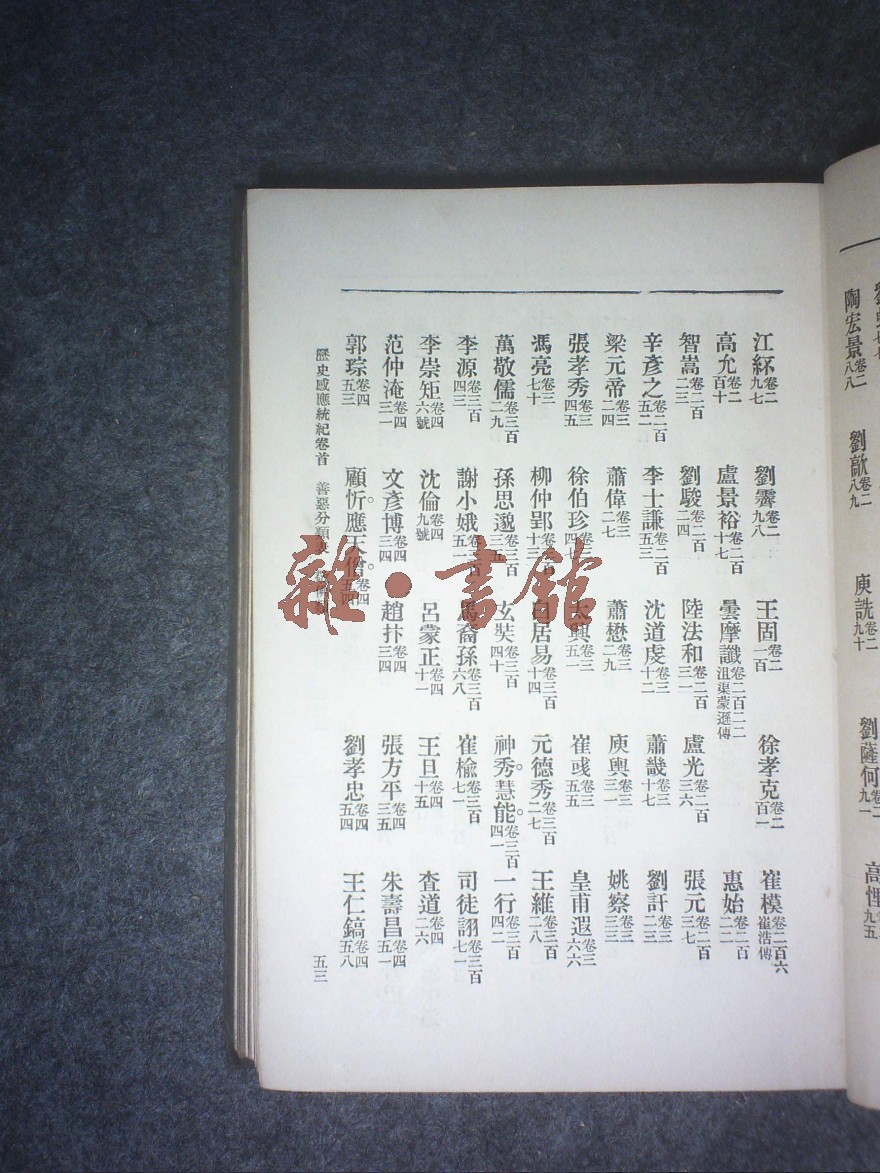 陶宏景卷二八八 劉歊卷二八九 庾詵卷二九十 劉薩何卷二九一
江紑卷二九七 劉霽卷二九八 王固卷二一百 徐孝克卷二百一 崔模卷二百六崔浩傳
高允卷二百十 盧景裕卷二百十七 曇摩讖卷二百二二沮渠蒙遜傳 惠始卷二百二二
智嵩卷二百二三 劉駿卷二百二四 陸法和卷二百三一 盧光卷二百三六 張元卷二百三七
辛彥之卷二百五二 李士謙卷二百五三 沈道虔卷三十二 蕭䁈卷三十七 劉訏卷三二三
梁元帝卷三二四 蕭偉卷三二七 蕭懋卷三二九 庾輿卷三三一 姚察卷三三三
張孝秀卷三四五 徐伯珍卷三四七 卷三五一 崔彧卷三五五 皇甫遐卷三六六
馮亮卷三七十 柳仲郢卷三百十三 白居易卷三百十四 元德秀卷三百二七 王維卷三百二八
萬敬儒卷三百二九 孫思邈卷三百三五 玄奘卷三百四十 神秀。慧能。卷三百四一 一行卷三百四二
李源卷三百四三 謝小娥卷三百五一 馬裔孫卷三百六八 崔檢卷三百七一 司徒詡卷三百七一
李崇矩卷四六號 沈倫卷四九號 呂蒙正卷四十一 王旦卷四十五 查道卷四二六
范仲淹卷四三一 文彥博卷四三四 趙抃卷四三四 張方平卷四三五 朱壽昌卷四五一
郭琮卷四五三 顧忻。應天僧。卷四五四 劉孝忠卷四五四 王仁鎬卷四五八
歷史感應統紀卷首 善惡分類表 五三
雜·書館